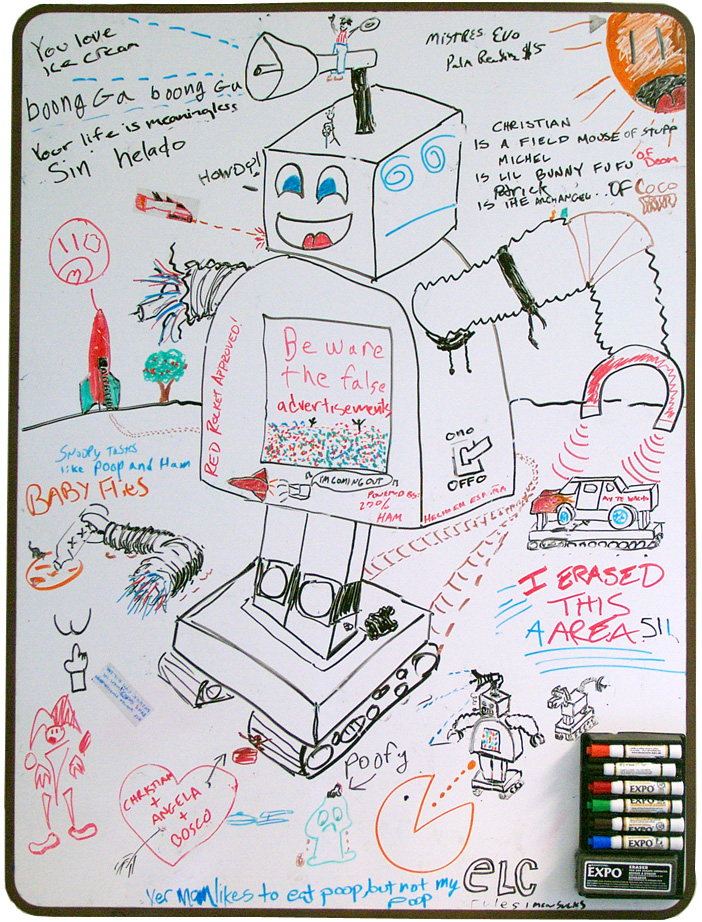 You love
ice cream
boong Ga boong Ga
Your life is meaningless
Sin helado
MISTRES EVO
Palm Reading $5
CHRISTIAN
IS A FIELD MOUSE OF STUFF
MICHEL
IS LIL BUNNY FUFU OF Doom
Patrick
IS THE ARCHANGEL... OF COCO
HOWDY!
RED ROCKET APPROVED!
Beware
the false
advertisements
ONO
OFFO
I'M COMING OUT
POWERED BY:
270%
HAM
HECHO EN
SNOOPY TASTES
like Poop and Ham
BABY Flies
I ERASED
THIS
A AREA 511
CHRISTIAN
+
ANGELA
+
BOSCO
POOFY
ELC
rules
Yer Mom likes to eat poop, but not my
poop
EXPO
EXPO
EXPO
EXPO
ERASER